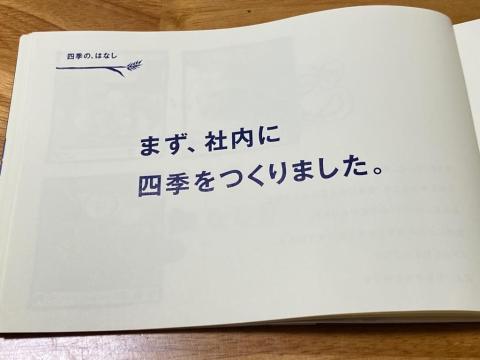 四季の、はなし
まず、社内に
四季をつくりました。